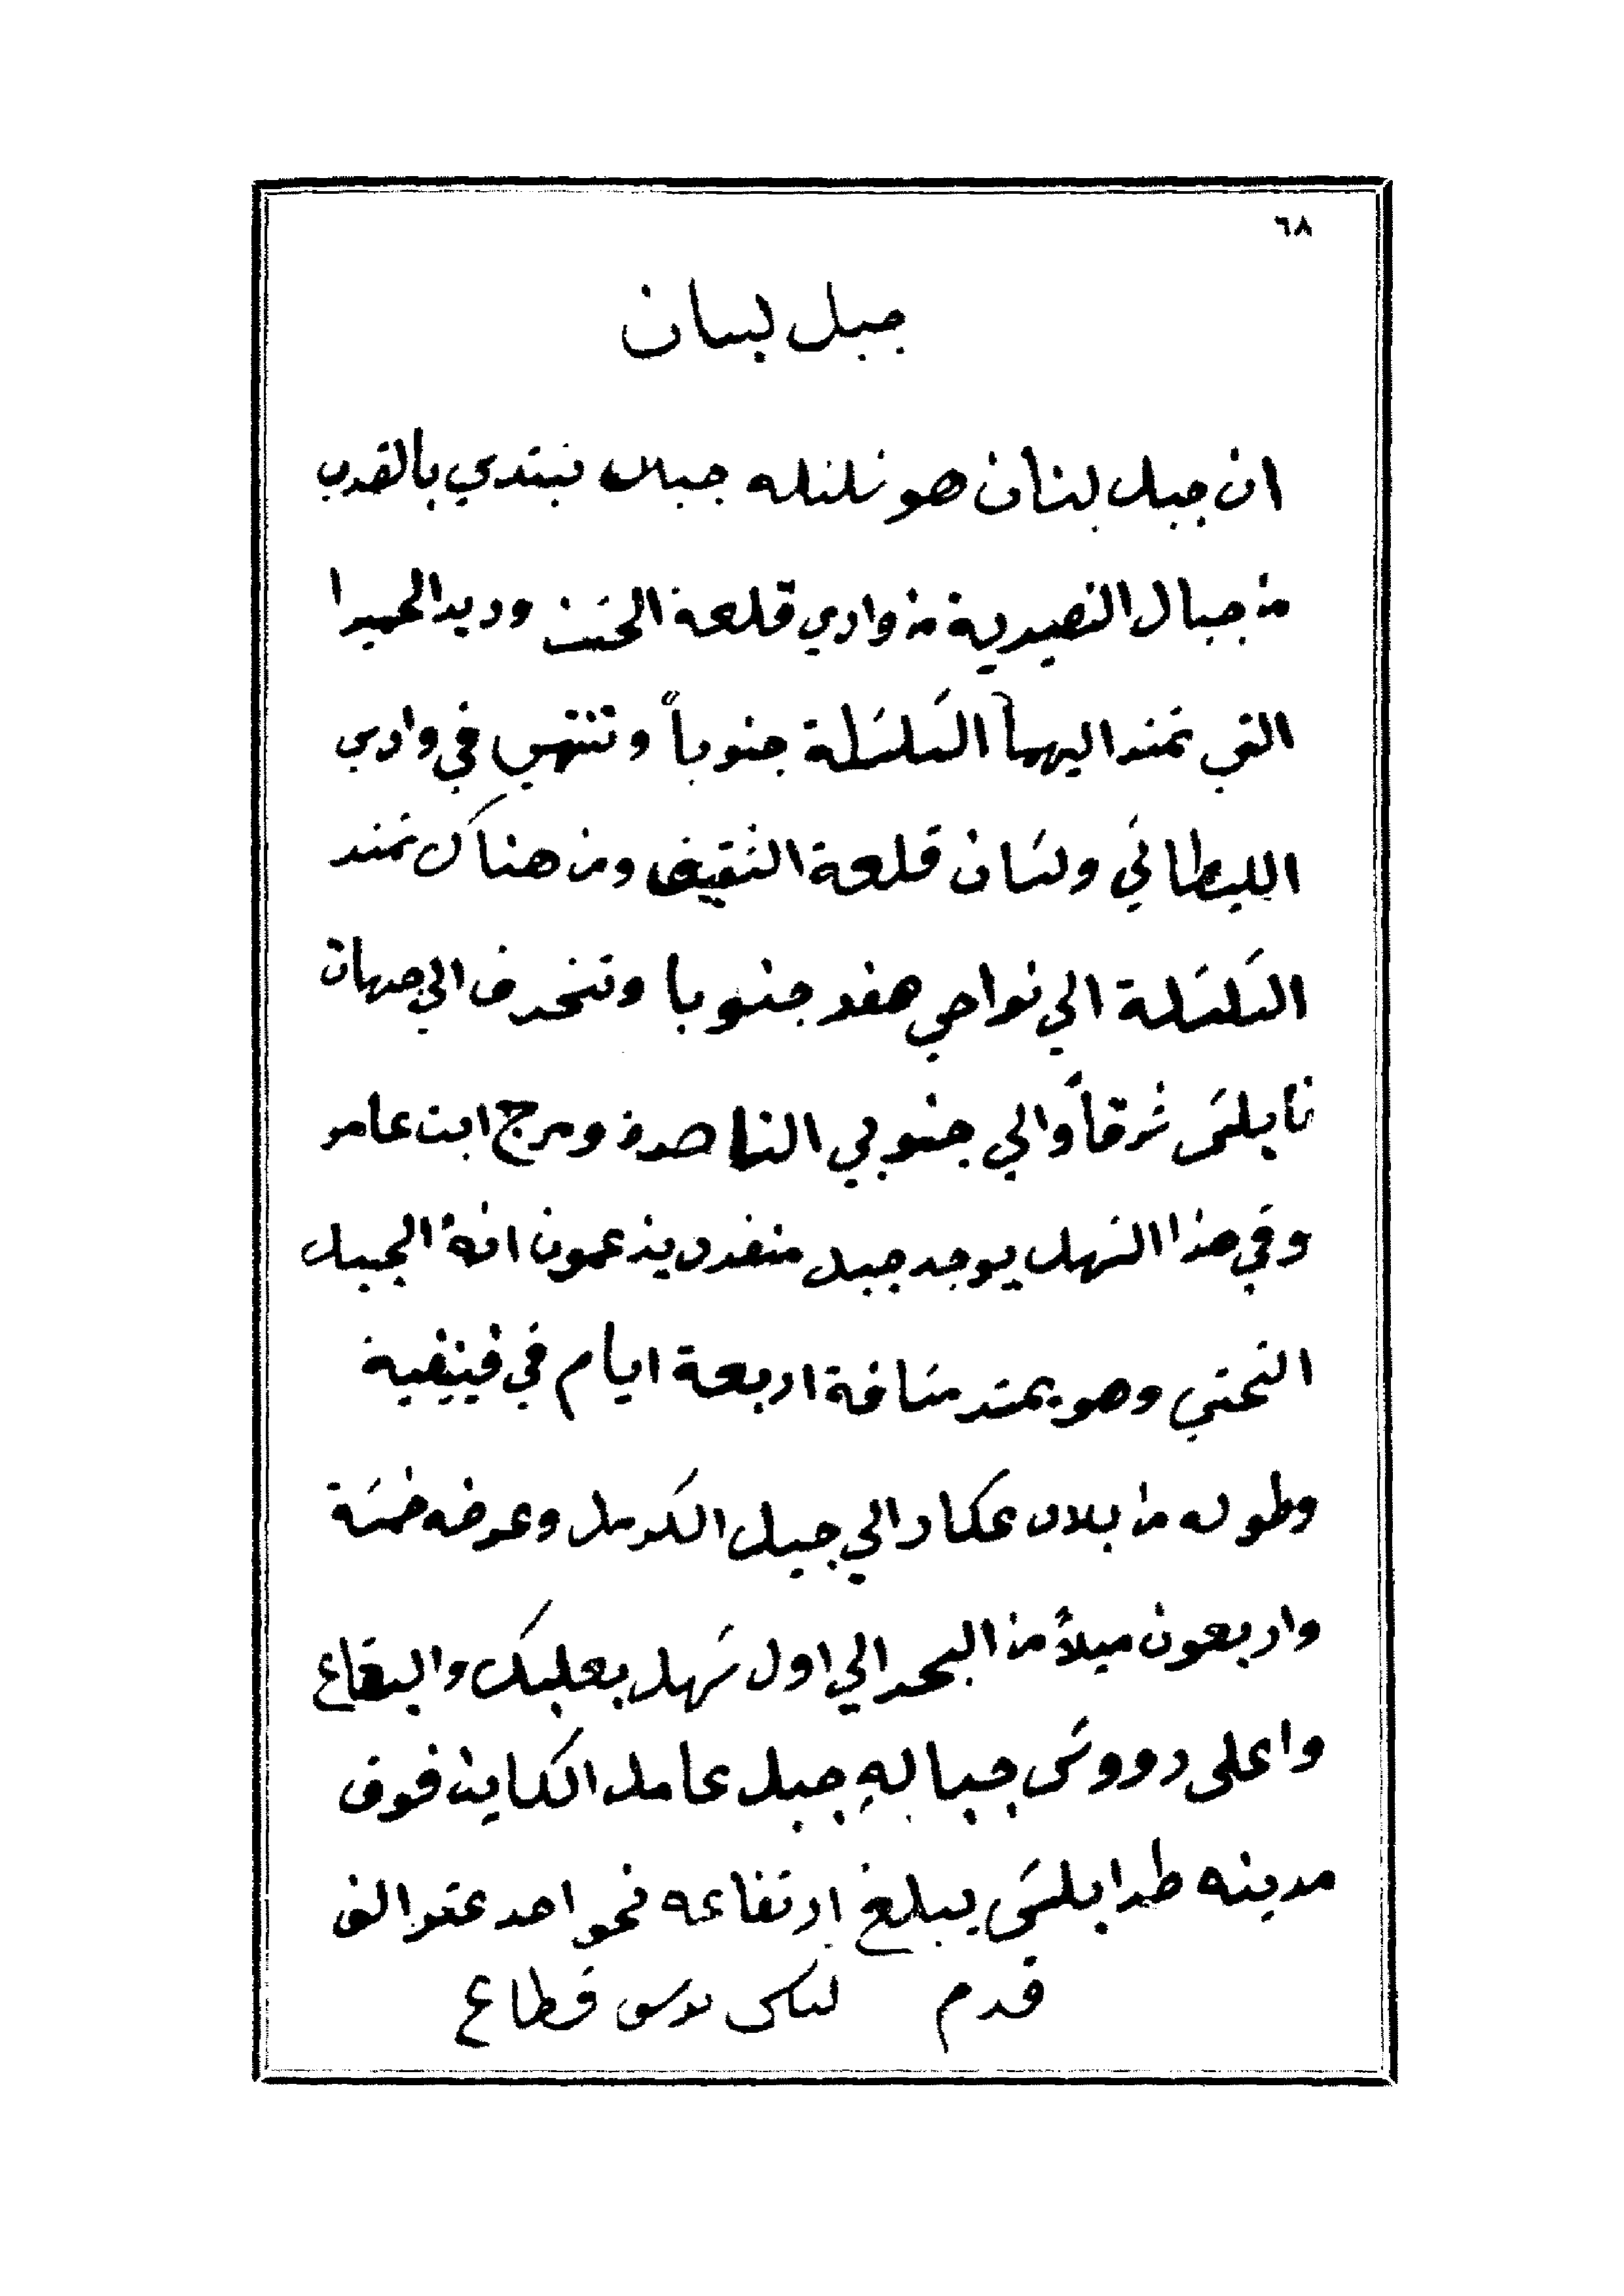 ٦٨
جبل لبنان
ان جبل لبنان هو سلسله جبال تبتدي بالقرب
من جبال النصيرية من وادي قلعة الحصن ودير الحميرا
التي تمتد اليها السلسلة جنوباً وتنتهي في وادي
الليطاني ولسان قلعة الشقيف ومن هناك تمتد
السلسلة الي نواحي صفد جنوبا وتنحرف الي جهات
نابلس شرقاً والي جنوبي الناصرة ومرج ابن عامر
وفي هذا السهل يوجد جبل منفرد يزعمون انهُ الجبل
التحتي وهو يمتد مسافة اربعة ايام في فينيقية
وطوله من بلاد عكار الي جبل الكرمل وعرضه خمسة
واربعون ميلاً من البحر الي اول سهل بعلبك والبقاع
واعلى رووس جبالهِ جبل عامل الكاين فوق
مدينه طرابلس يبلغ ارتفاعه نحو احد عشر الف
قدم قطاع